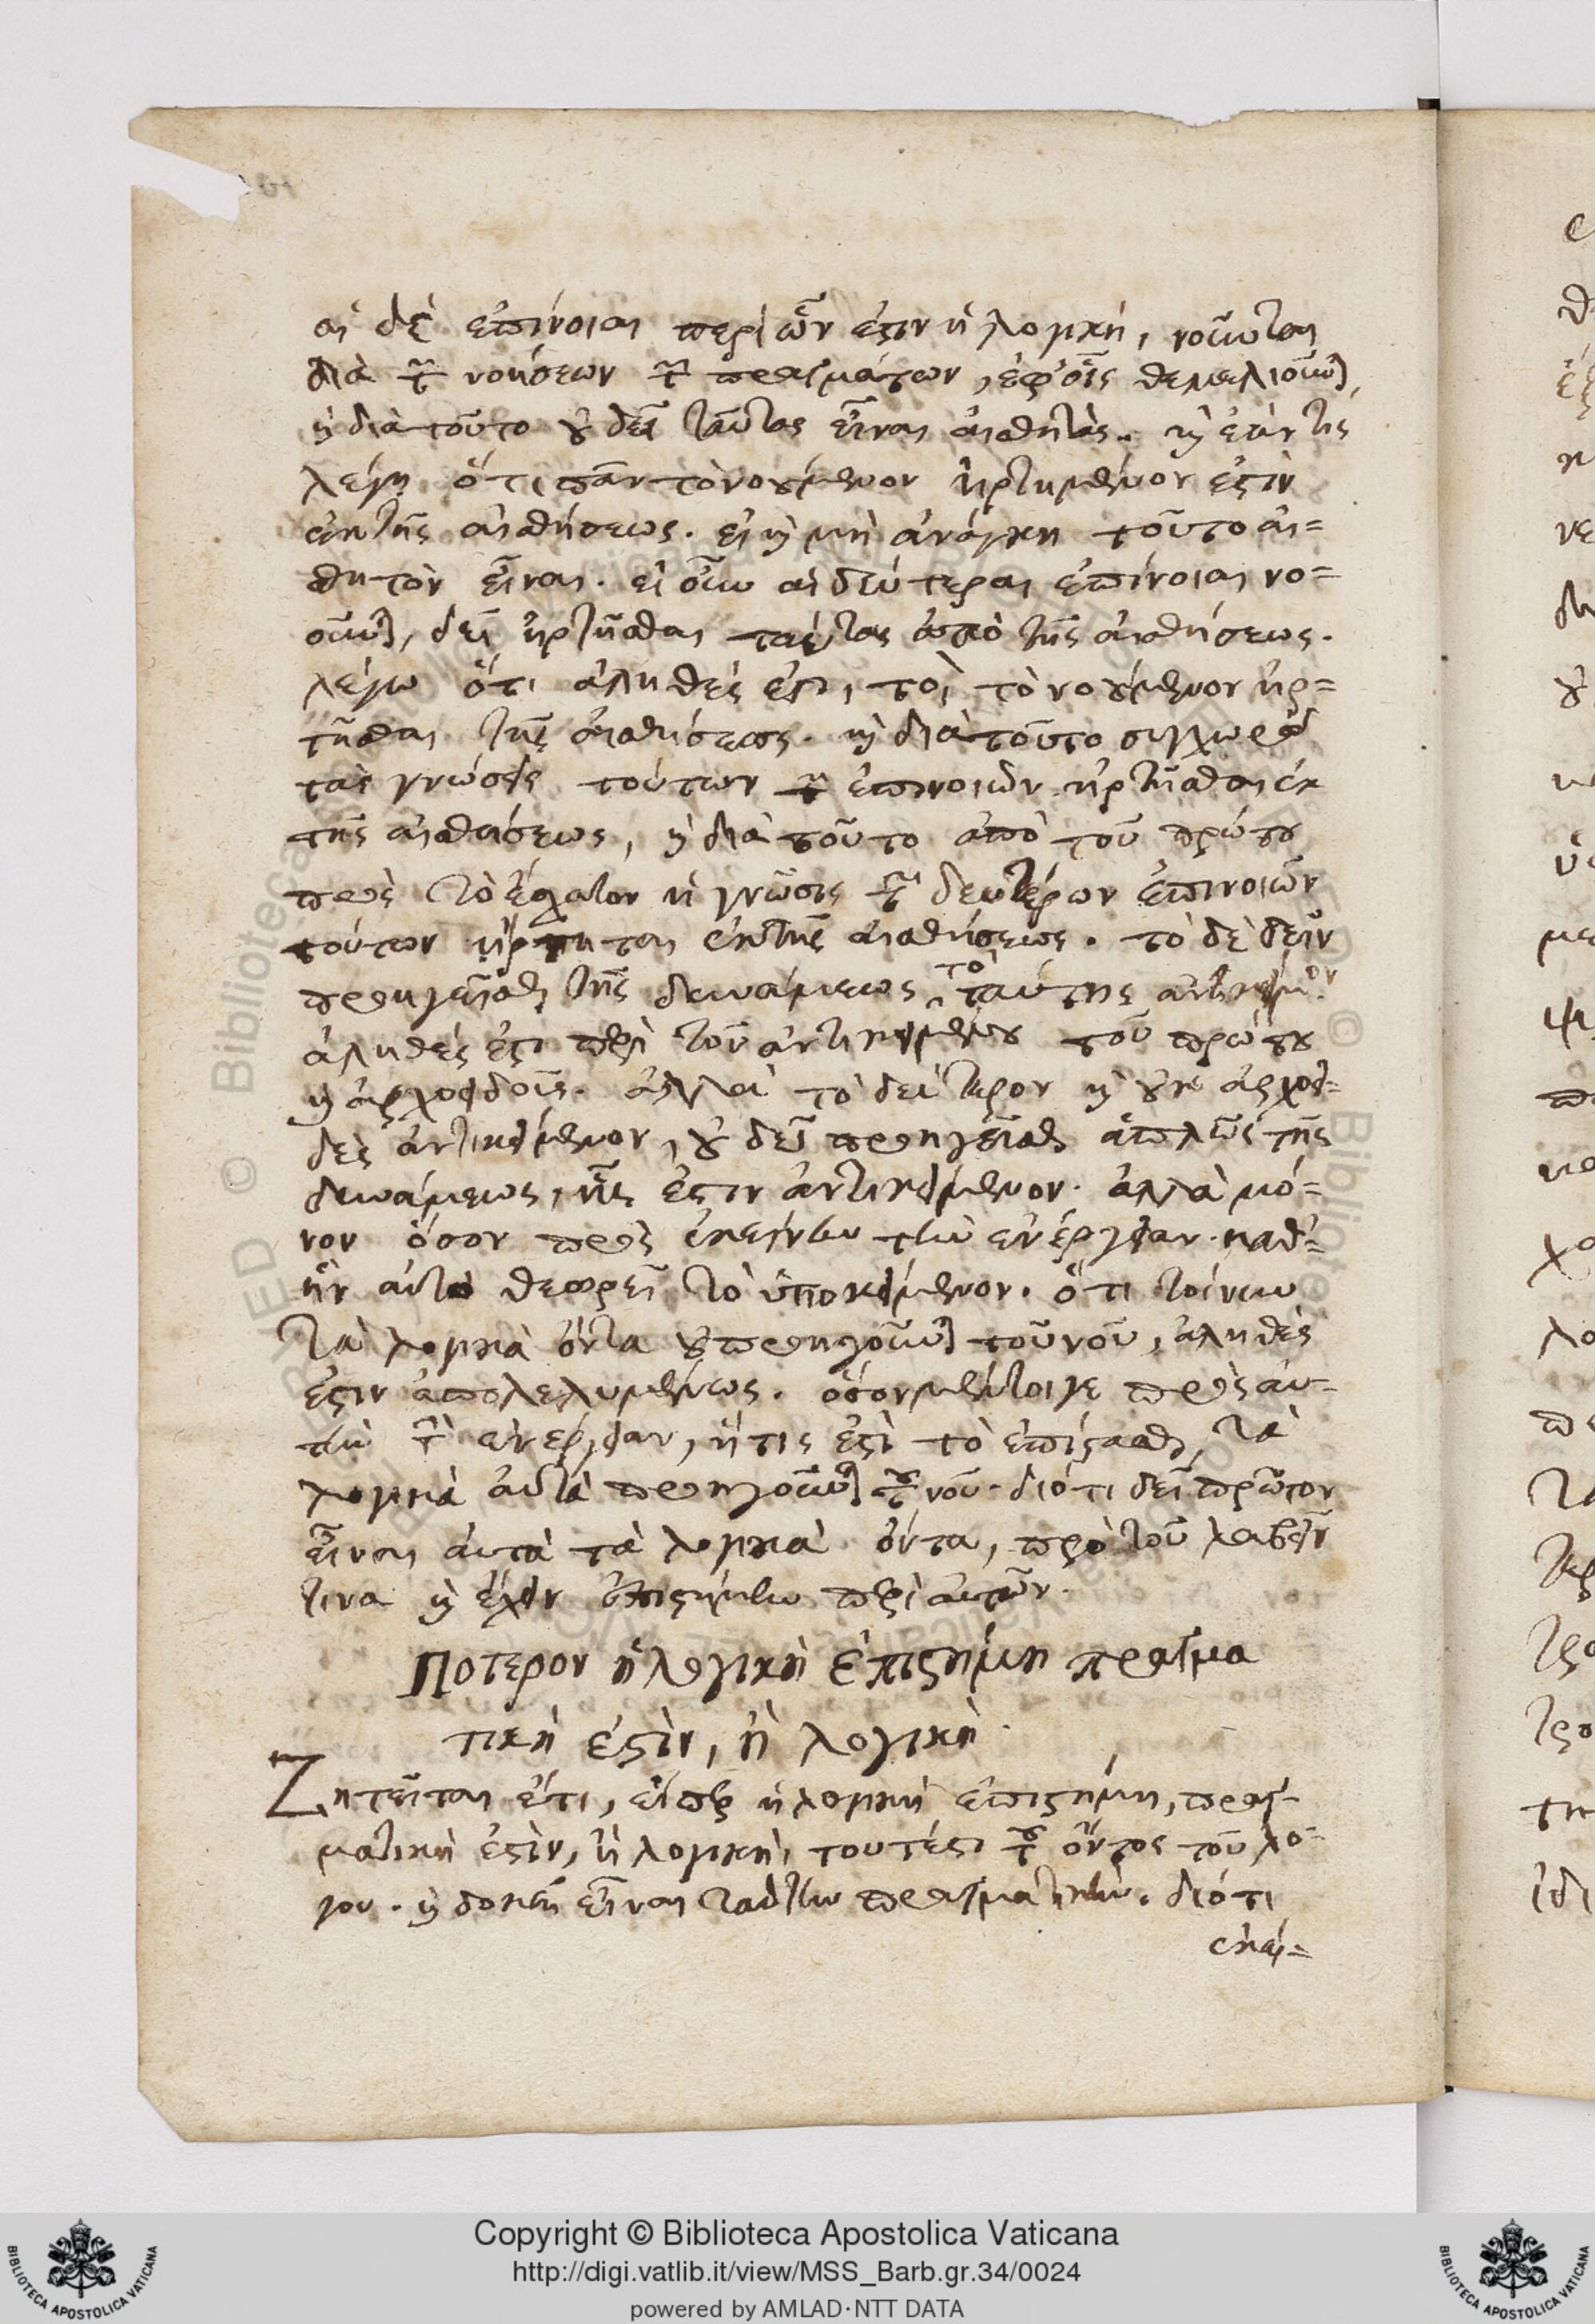 αἱ δὲ ἐπίνοιαι περὶ ὧν ἐστιν ἡ λογικὴ, νοοῦνται
διὰ τῶν νοήσεων τῶν πραγμάτων, ἐφ' οἷς θεμελιοῦνται,
καὶ διὰ τοῦτο οὐ δεῖ ταύτας εἶναι αἰσθητάς. καὶ ἐάν τις
λέγῃ ὅτι πᾶν τὸ νοούμενον ἠρτημένον ἐστὶν
ἐκ τῆς αἰσθήσεως. εἰ καὶ μὴ ἀνάγκη τοῦτο αἰ=
σθητὸν εἶναι. εἰ οὖν αἱ δεύτεραι ἐπίνοιαι νο=
οῦνται, δεῖ ἠρτῆσθαι ταύτας ἀπὸ τῆς αἰσθήσεως.
λέγω ὅτι ἀληθές ἐστι, τὸ νοούμενον ἠρ=
τῆσθαι τῆς αἰσθήσεως. καὶ διὰ τοῦτο συγχωρῶ
τὰς γνώσεις τούτων τῶν ἐπινοιῶν ἠρτῆσθαι ἐκ
τῆς αἰσθήσεως, καὶ διὰ τοῦτο ἀπὸ τοῦ πρώτου
πρὸς τὸ ἔσχατον ἡ γνῶσις τῶν δευτέρων ἐπινοιῶν
τούτων ἤρτηται ἐκ τῆς αἰσθήσεως. τὸ δὲ δεῖν
προηγεῖσθαι τῆς δυνάμεως τὸ ταύτης ἀντικείμενον
ἀληθές ἐστι περὶ τοῦ ἀντικειμένου τοῦ πρώτου
καὶ ἀρχοειδοῦς. ἀλλὰ τὸ δεύτερον καὶ οὐκ ἀρχοει=
δὲς ἀντικείμενον, οὐ δεῖ προηγεῖσθαι ἁπλῶς τῆς
δυνάμεως, ἧς ἐστιν ἀντικείμενον. ἀλλὰ μό=
νον ὅσον πρὸς ἐκείνην τὴν ἐνέργειαν. καθ'=
ἣν αὐτὸ θεωρεῖ τὸ ὑποκείμενον. ὅτι τοίνυν
τὰ λογικὰ ὄντα οὐ προηγοῦνται τοῦ νοῦ, ἀληθές
ἐστιν ἀπολελυμένως. ὅσον μέντοιγε πρὸς αὐ=
τὴν τὴν ἐνέργειαν, ἥτις ἐστὶ τὸ ἐπίστασθαι, τὰ
λογικὰ αὐτὰ προηγοῦνται τοῦ νοῦ. διότι δεῖ πρῶτον
εἶναι αὐτὰ τὰ λογικὰ ὄντα, πρὸ τοῦ λαβεῖν
τινα καὶ ἔχειν ἐπιστήμην περὶ αὐτῶν.
Πότερον ἡ λογικὴ ἐπιστήμη πραγμα
τικὴ ἐστὶν, ἢ λογικὴ.
Ζητεῖται ἔτι, εἴπερ ἡ λογικὴ ἐπιστήμη, πραγ=
ματικὴ ἐστὶν, ἢ λογικὴ, τουτέστι τοῦ ὄντος τοῦ λό=
γου. καὶ δοκεῖ εἶναι ταύτην πραγματικὴν. διότι
ἐκεί=
Copyright © Biblioteca Apostolica Vaticana
http://digi.vatlib.it/view/MSS_Barb.gr.34/0024
powered by AMLAD·NTT DATA